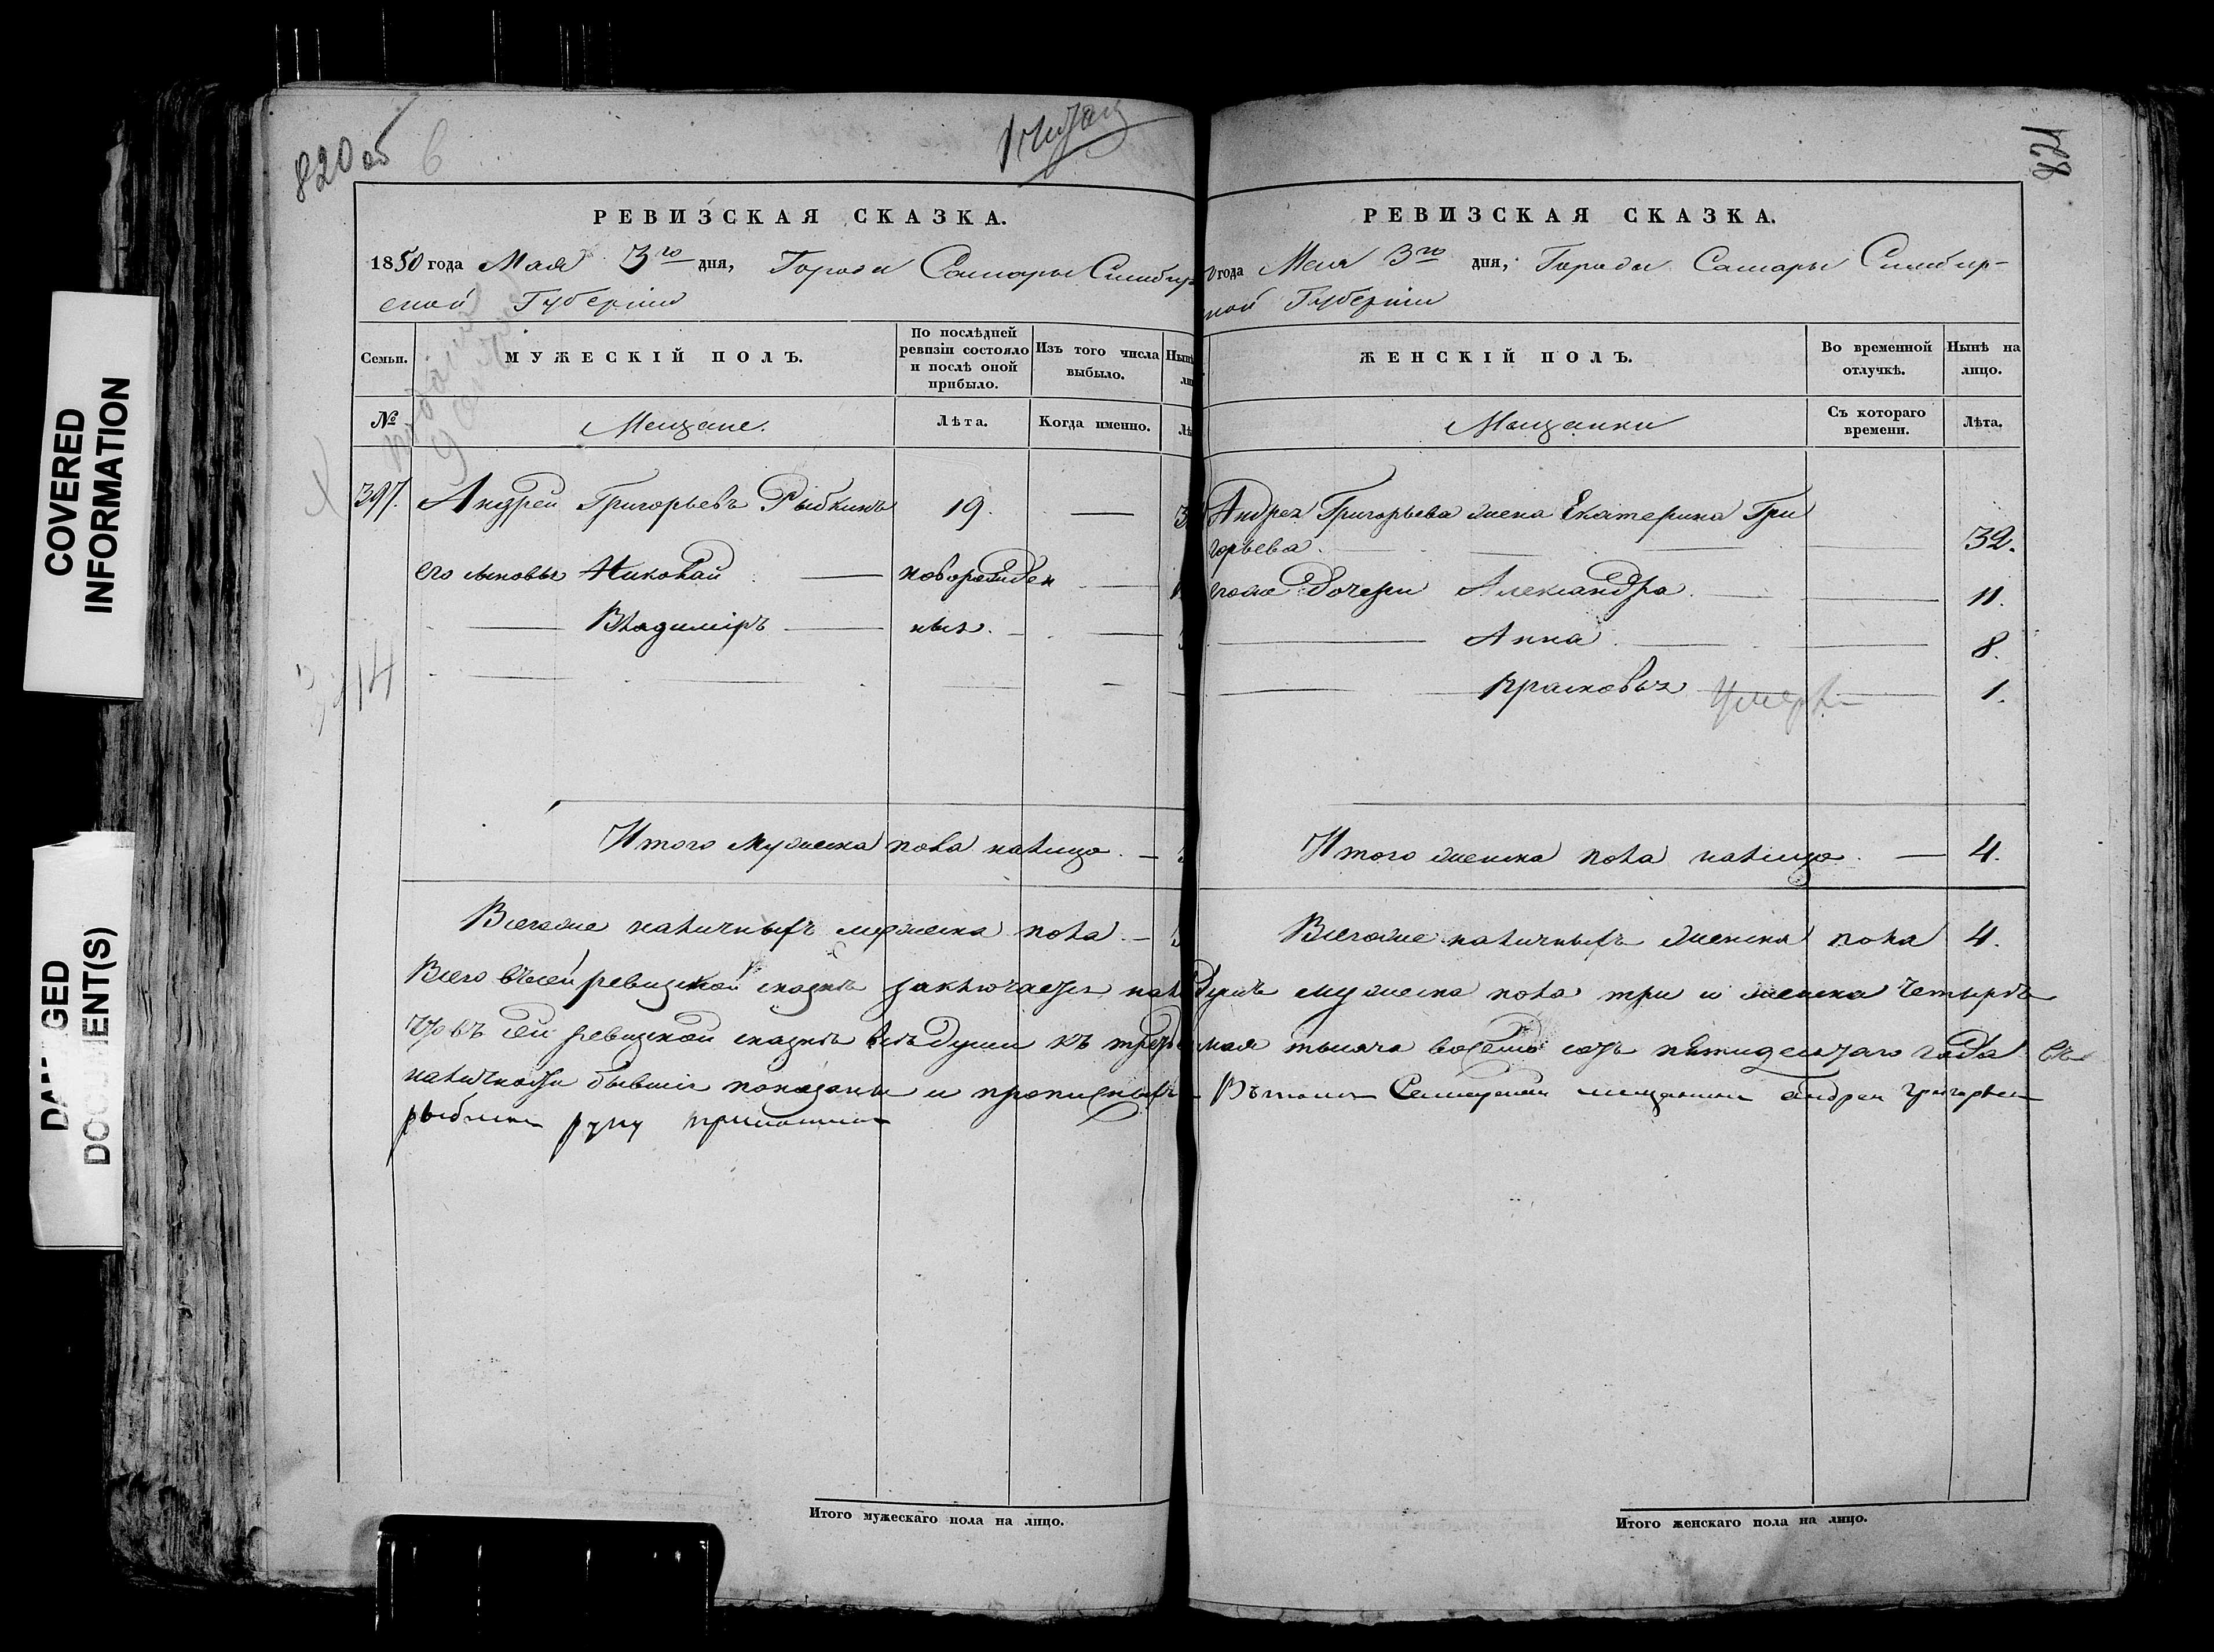 820 об
821
РЕВИЗСКАЯ СКАЗКА.
1850 года Мая 3го дня, Города Самары Симбир
ской Губерніи
Семьи.
МУЖЕСКІЙ ПОЛЪ.
По послѣдней
ревизіи состояло
и послѣ оной
прибыло.
Изъ того числа
выбыло.
Нынѣ
№
Мещане.
Лѣта.
Когда именно.
Лѣ
397. Андрей Григорьевъ Рыбкинъ 19. —
его сыновья Николай — новорожден —
— Владиміръ — ныя. —
14
Итого мужеска пола налицо. —
Всегоже наличныхъ мужеска пола. —
РЕВИЗСКАЯ СКАЗКА.
0 года Мая 3го дня, Города Самары Симбир-
ской Губерніи
ЖЕНСКІЙ ПОЛЪ.
Во временной
отлучкѣ.
Нынѣ на
лицо.
Мещанки
Съ котораго
времени.
Лѣта.
Андрея Григорьева жена Екатерина Гри
горьева. — 32.
егоже дочери Александра — 11.
— Анна — 8.
— Прасковья умерла — 1.
Итого женска пола налицо. — 4.
Всегоже наличныхъ женска пола 4.
Всего въсей ревизской сказкѣ заключается душъ мужеска пола три и женска четыре
Что въ сей ревизской сказкѣ всѣ души къ мая тысяча восемь сотъ пятидесятаго года въ
наличности бывшія показаны и Вътомъ Самарскій мещанинъ андрей григорьевъ
рыбкинъ руку приложилъ
Итого мужескаго пола на лицо.
Итого женскаго пола на лицо.
COVERED
INFORMATION
DA GED
DOCUMENT(S)